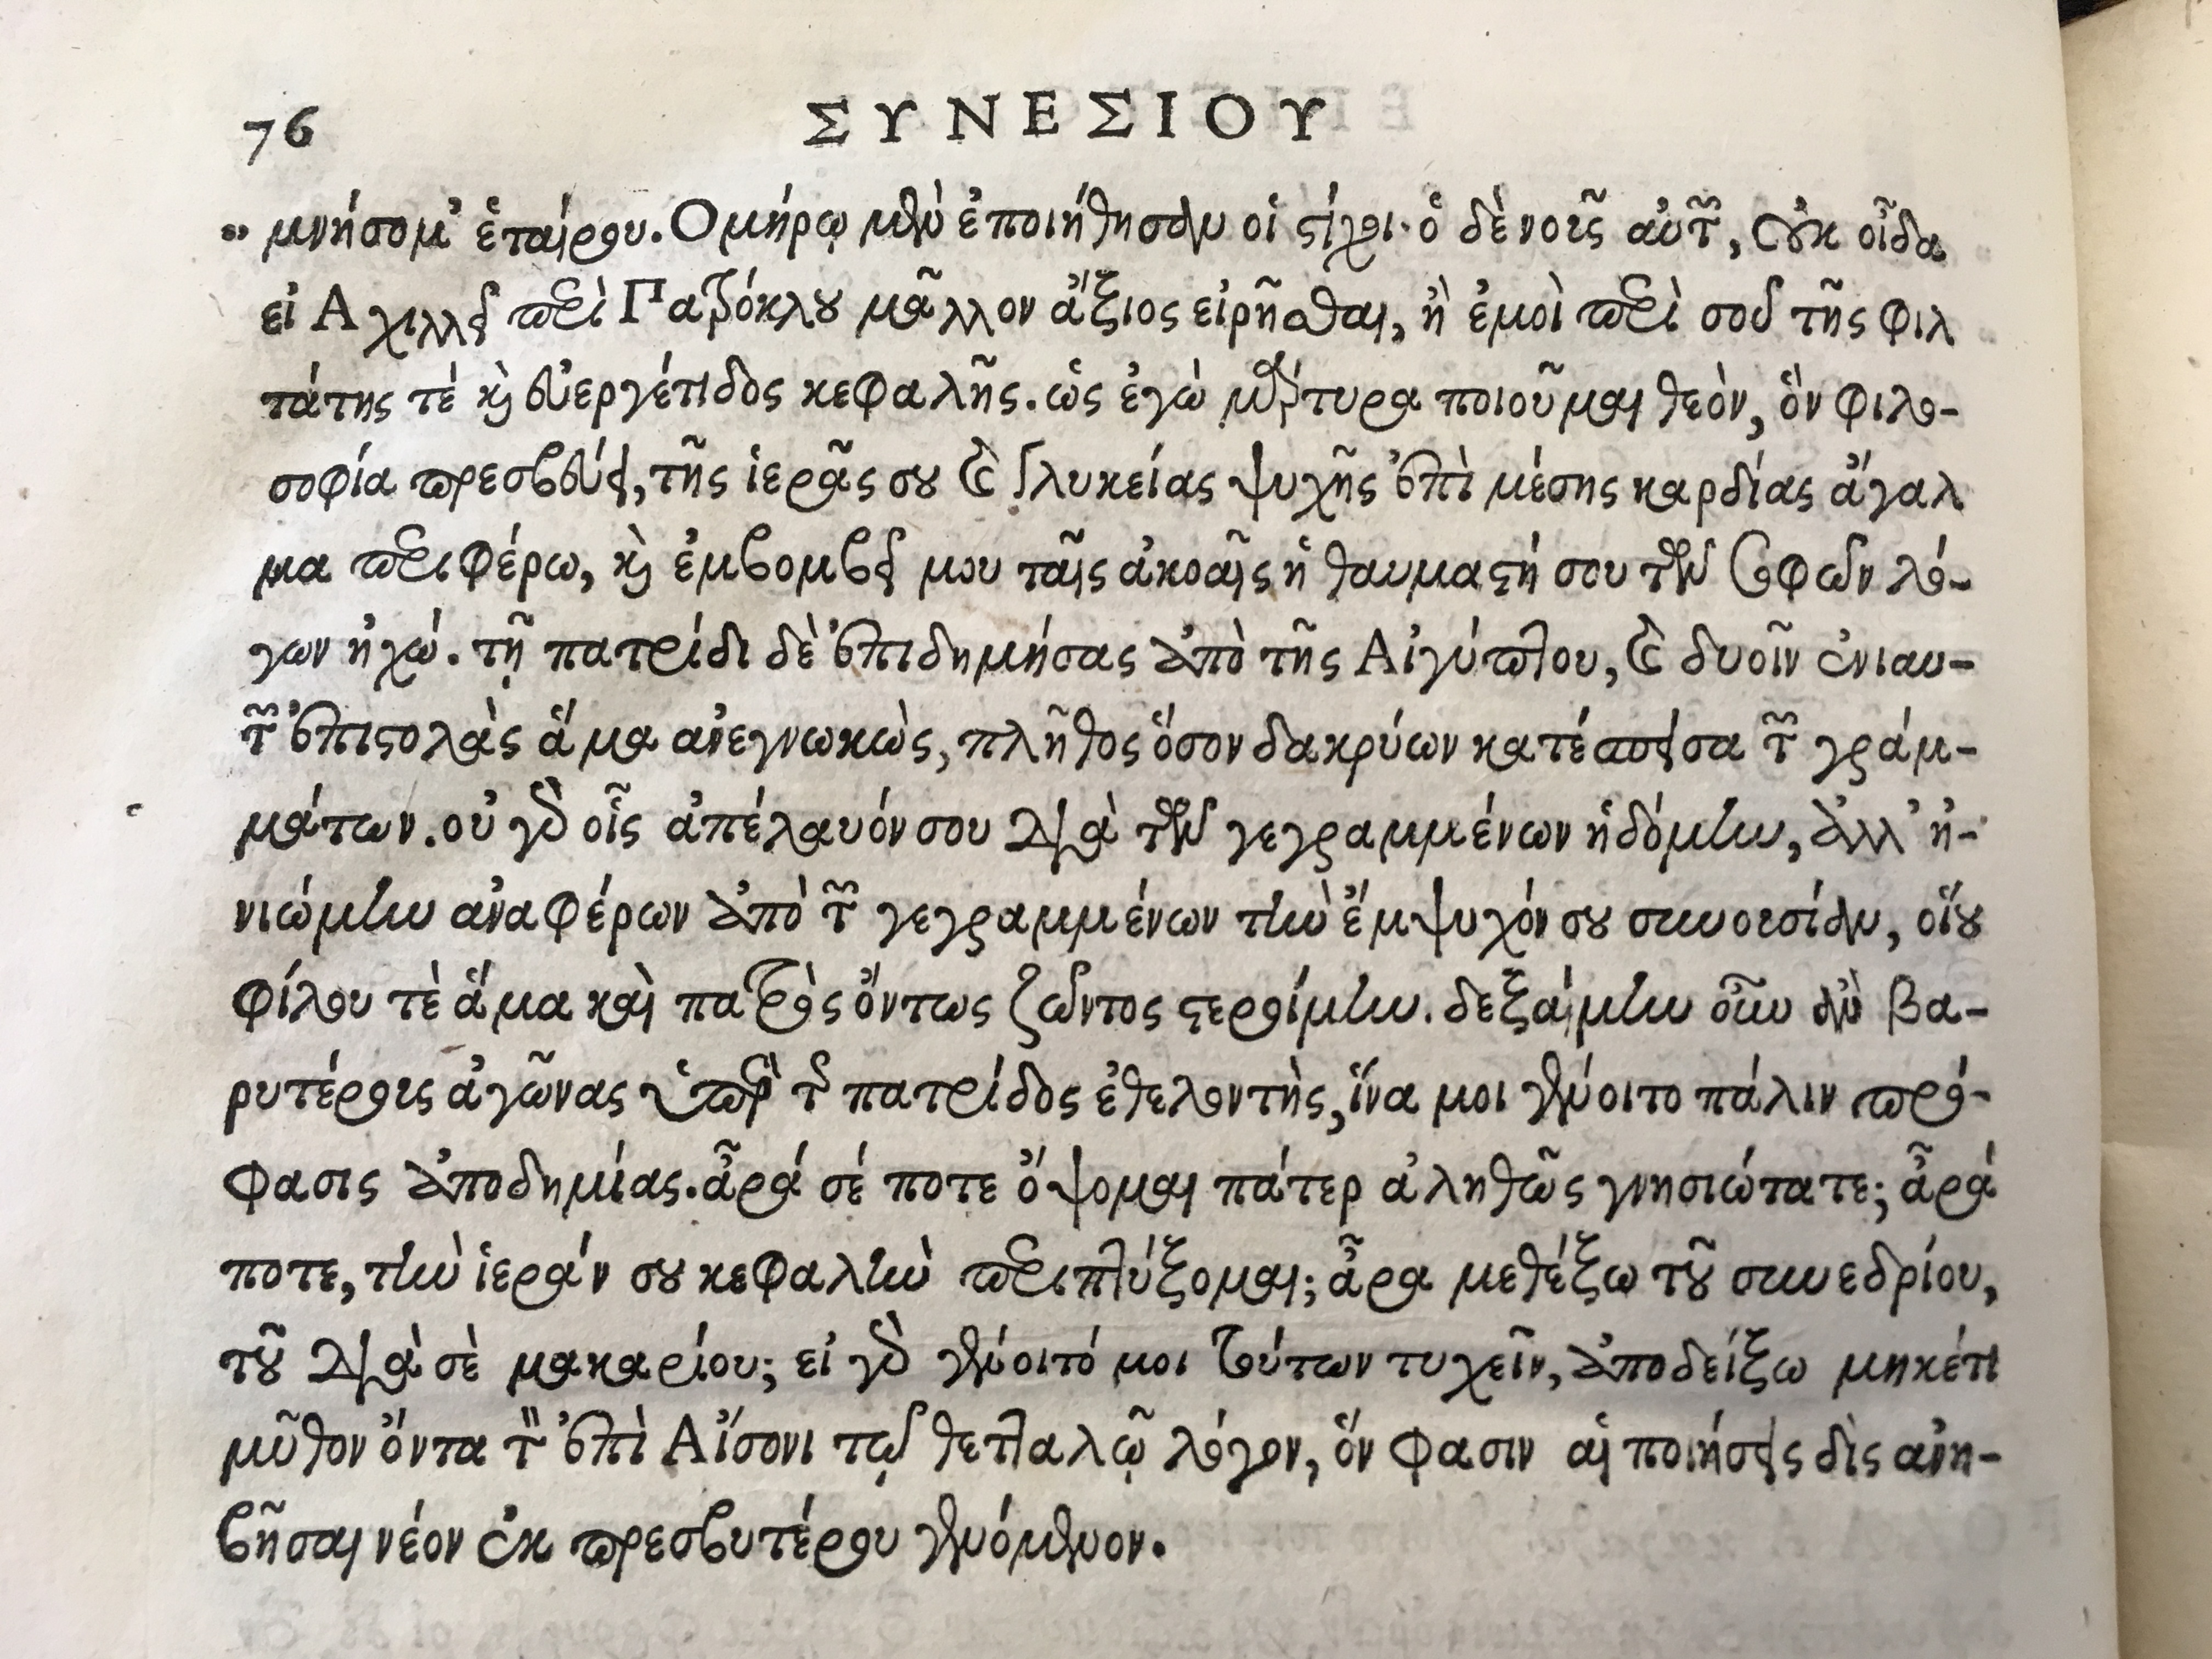 76
ΣΥΝΕΣΙΟΥ
„ μνήσομ᾽ ἑταίρου. Ομήρῳ μὲν ἐποιήθησαν οἱ στίχοι· ὁ δὲ νοῦς αὐτῶν, οὐκ οἶδα
εἰ Αχιλλεῖ περὶ Πατρόκλου μᾶλλον ἄξιος εἰρῆσθαι, ἢ ἐμοὶ περὶ σοῦ τῆς φιλ
τάτης τέ καὶ εὐεργέτιδος κεφαλῆς. ὡς ἐγὼ μάρτυρα ποιοῦμαι θεὸν, ὃν φιλο-
σοφία πρεσβεύει, τῆς ἱερᾶς σου καὶ γλυκείας ψυχῆς ἐπὶ μέσης καρδίας ἄγαλ
μα περιφέρω, καὶ ἐμβομβεῖ μου ταῖς ἀκοαῖς ἡ θαυμαστή σου τῶν σοφῶν λό-
γων ἠχώ. τῇ πατρίδι δὲ ἐπιδημήσας ἀπὸ τῆς Αἰγύπτου, καὶ δυοῖν ἐνιαυ-
τῶν ἐπιστολὰς ἅμα ἀνεγνωκὼς, πλῆθος ὅσον δακρύων κατέσπεισα τῶν γράμ-
μάτων. οὐ γὰρ οἷς ἀπέλαυόν σου διὰ τῶν γεγραμμένων ἡδόμην, ἀλλ᾽ ἠ-
νιώμην ἀναφέρων ἀπὸ τῶν γεγραμμένων τὴν ἔμψυχόν σου συνουσίαν, οἵου
φίλου τὲ ἅμα καὶ πατρὸς ὄντως ζῶντος στεροίμην. δεξαίμην οὖν ἂν βα-
ρυτέρους ἀγῶνας ὑπὲρ τῆς πατρίδος ἐθελοντὴς, ἵνα μοι γένοιτο πάλιν πρό-
φασις ἀποδημίας. ἆρά σέ ποτε ὄψομαι πάτερ ἀληθῶς γνησιώτατε; ἆρά
ποτε, τὴν ἱεράν σου κεφαλὴν περιπτύξομαι; ἆρα μεθέξω τοῦ συνεδρίου,
τοῦ διὰ σὲ μακαρίου; εἰ γὰρ γένοιτό μοι τούτων τυχεῖν, ἀποδείξω μηκέτι
μῦθον ὄντα τὸν ἐπὶ Αἴσονι τῷ θετταλῷ λόγον, ὅν φασιν αἱ ποιήσεις δὶς ἀνη-
βῆσαι νέον ἐκ πρεσβυτέρου γενόμενον.